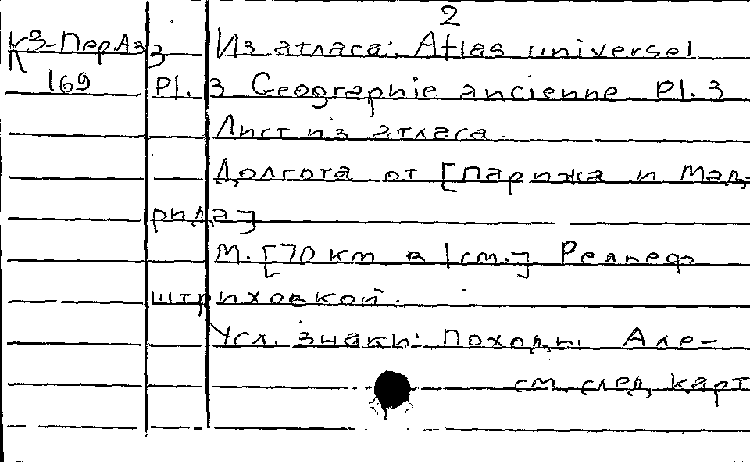 2
К3-ПерАз 3 Из атласа: Atlas universel
К
169 Pl. 3 Geographie ancienne Pl. 3
Лист из атласа.
Долгота от [Парижа и Мад-
рида]
М. [70 km в 1 см.] Рельеф
штриховкой.
Усл. знаки: Походы Але-
см. след. карт